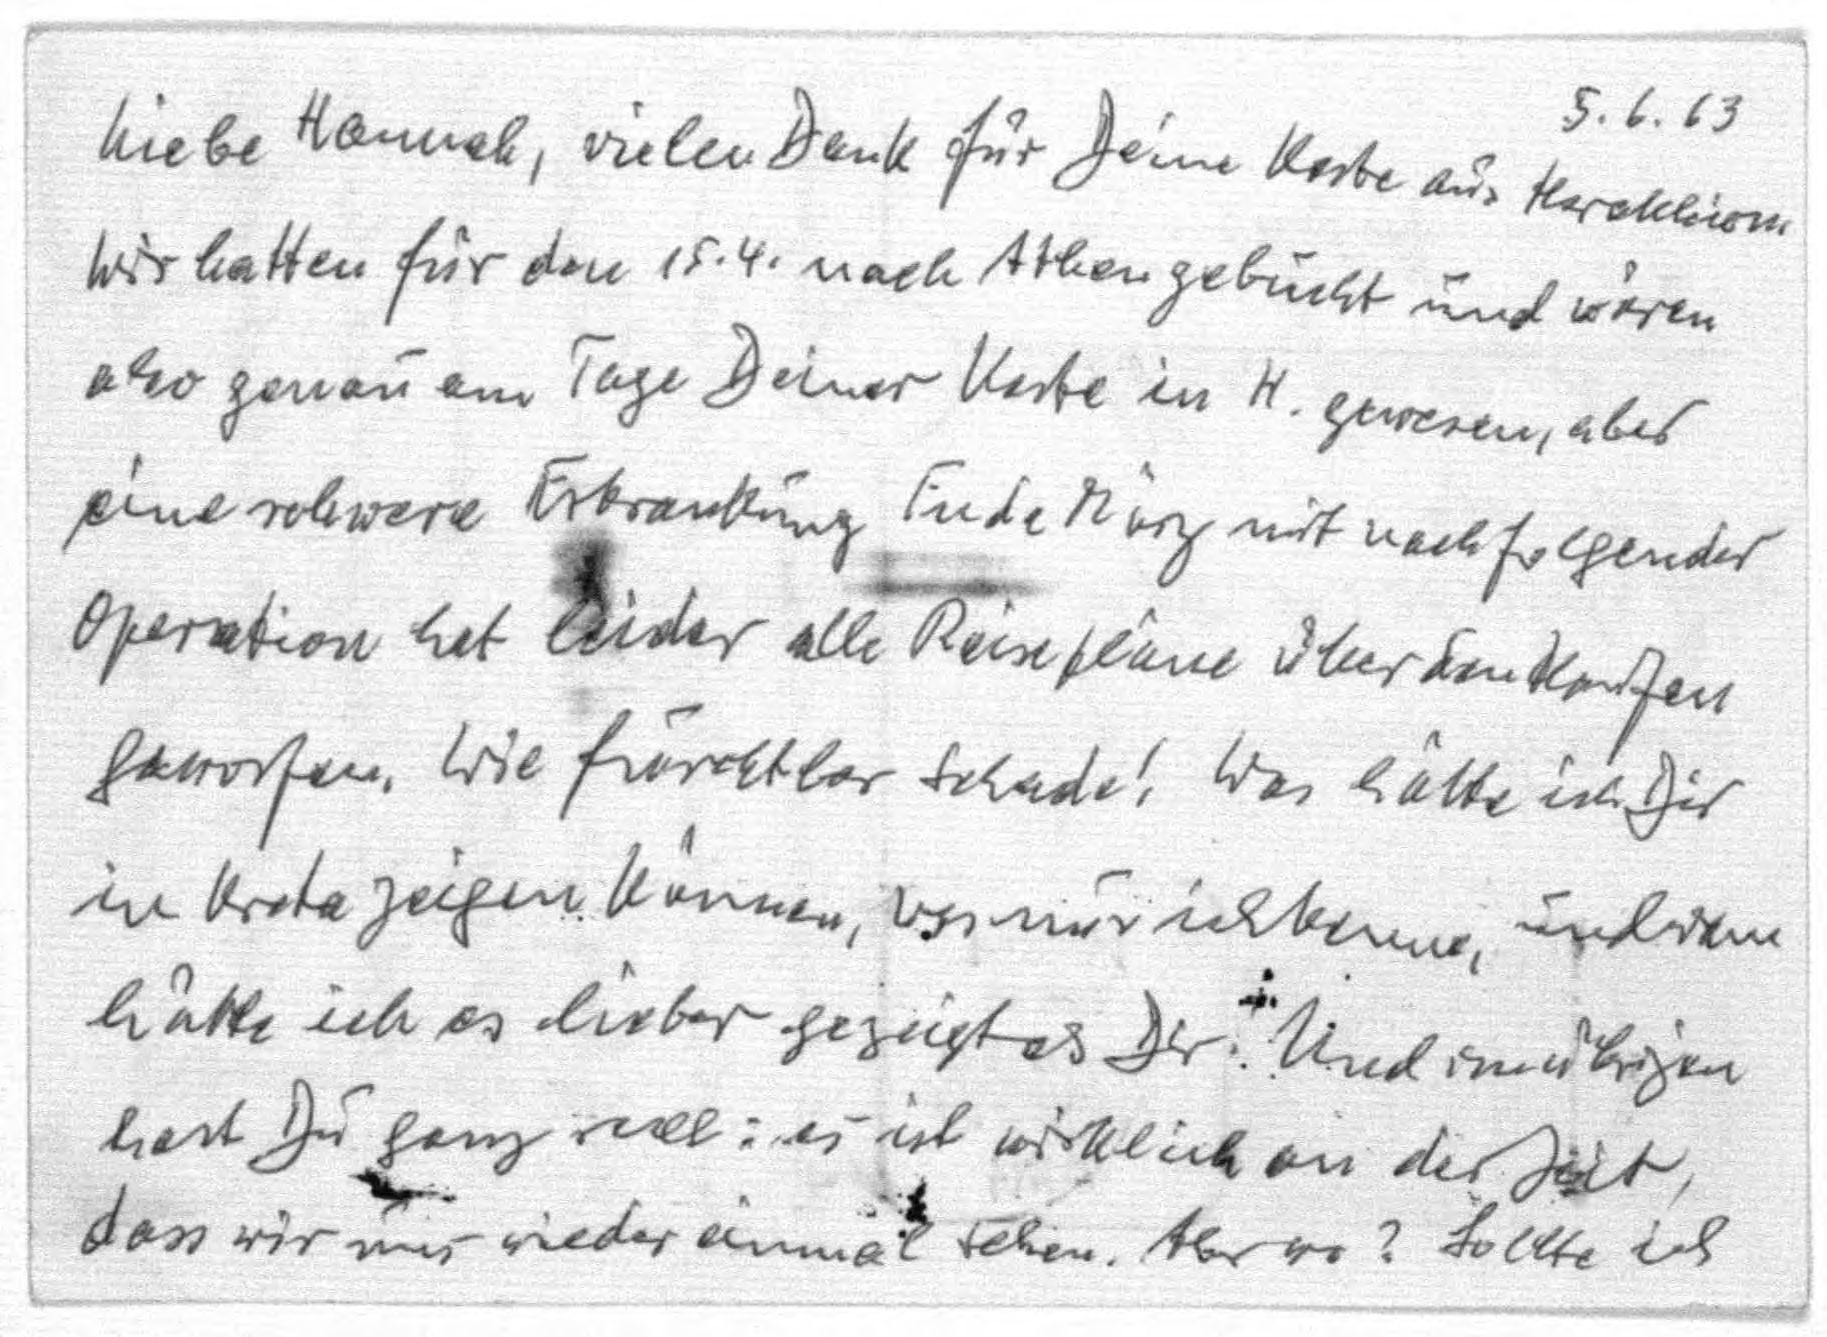 5.6.63
Liebe Hannah, vielen Dank für Deine Karte aus Heraklion
Wir hatten für den 15.4. nach Athen gebucht und wären
also genau am Tage Deiner Karte in H. gewesen, aber
eine schwere Erkrankung Ende März mit nachfolgender
Operation hat leider alle Reisepläne über den Haufen
geworfen. Wie furchtbar schade! Was hätte ich Dir
in Kreta zeigen können, was nur ich kenne, und wem
hätte ich es lieber gezeigt als Dir. Und im übrigen
hast Du ganz recht: es ist wirklich an der Zeit,
dass wir uns wieder einmal sehen. Aber wo? Sollte ich